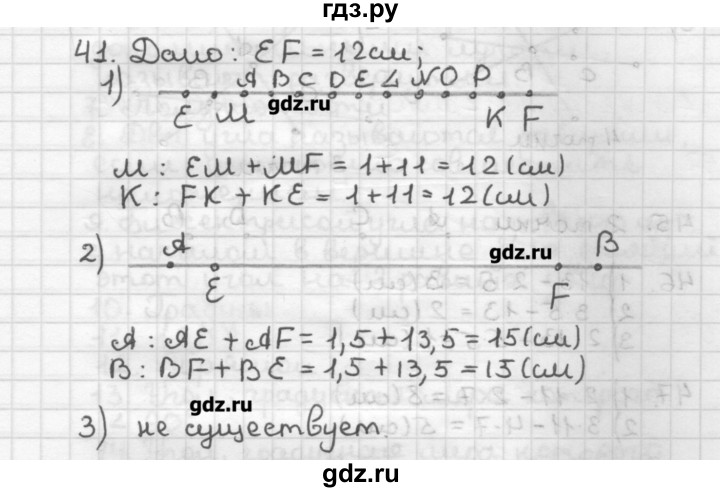 гдз.ру
41. Дано: EF = 12 см;
1) A B C D E Z N O P
gdz.ru
E M K F
M: EM + MF = 1 + 11 = 12 (см)
K: FK + KE = 1 + 11 = 12 (см)
2) A B
gdz.ru
E F
A: AE + AF = 1,5 + 13,5 = 15 (см)
B: BF + BE = 1,5 + 13,5 = 15 (см)
gdz.ru
3) не существует.
gdz.ru